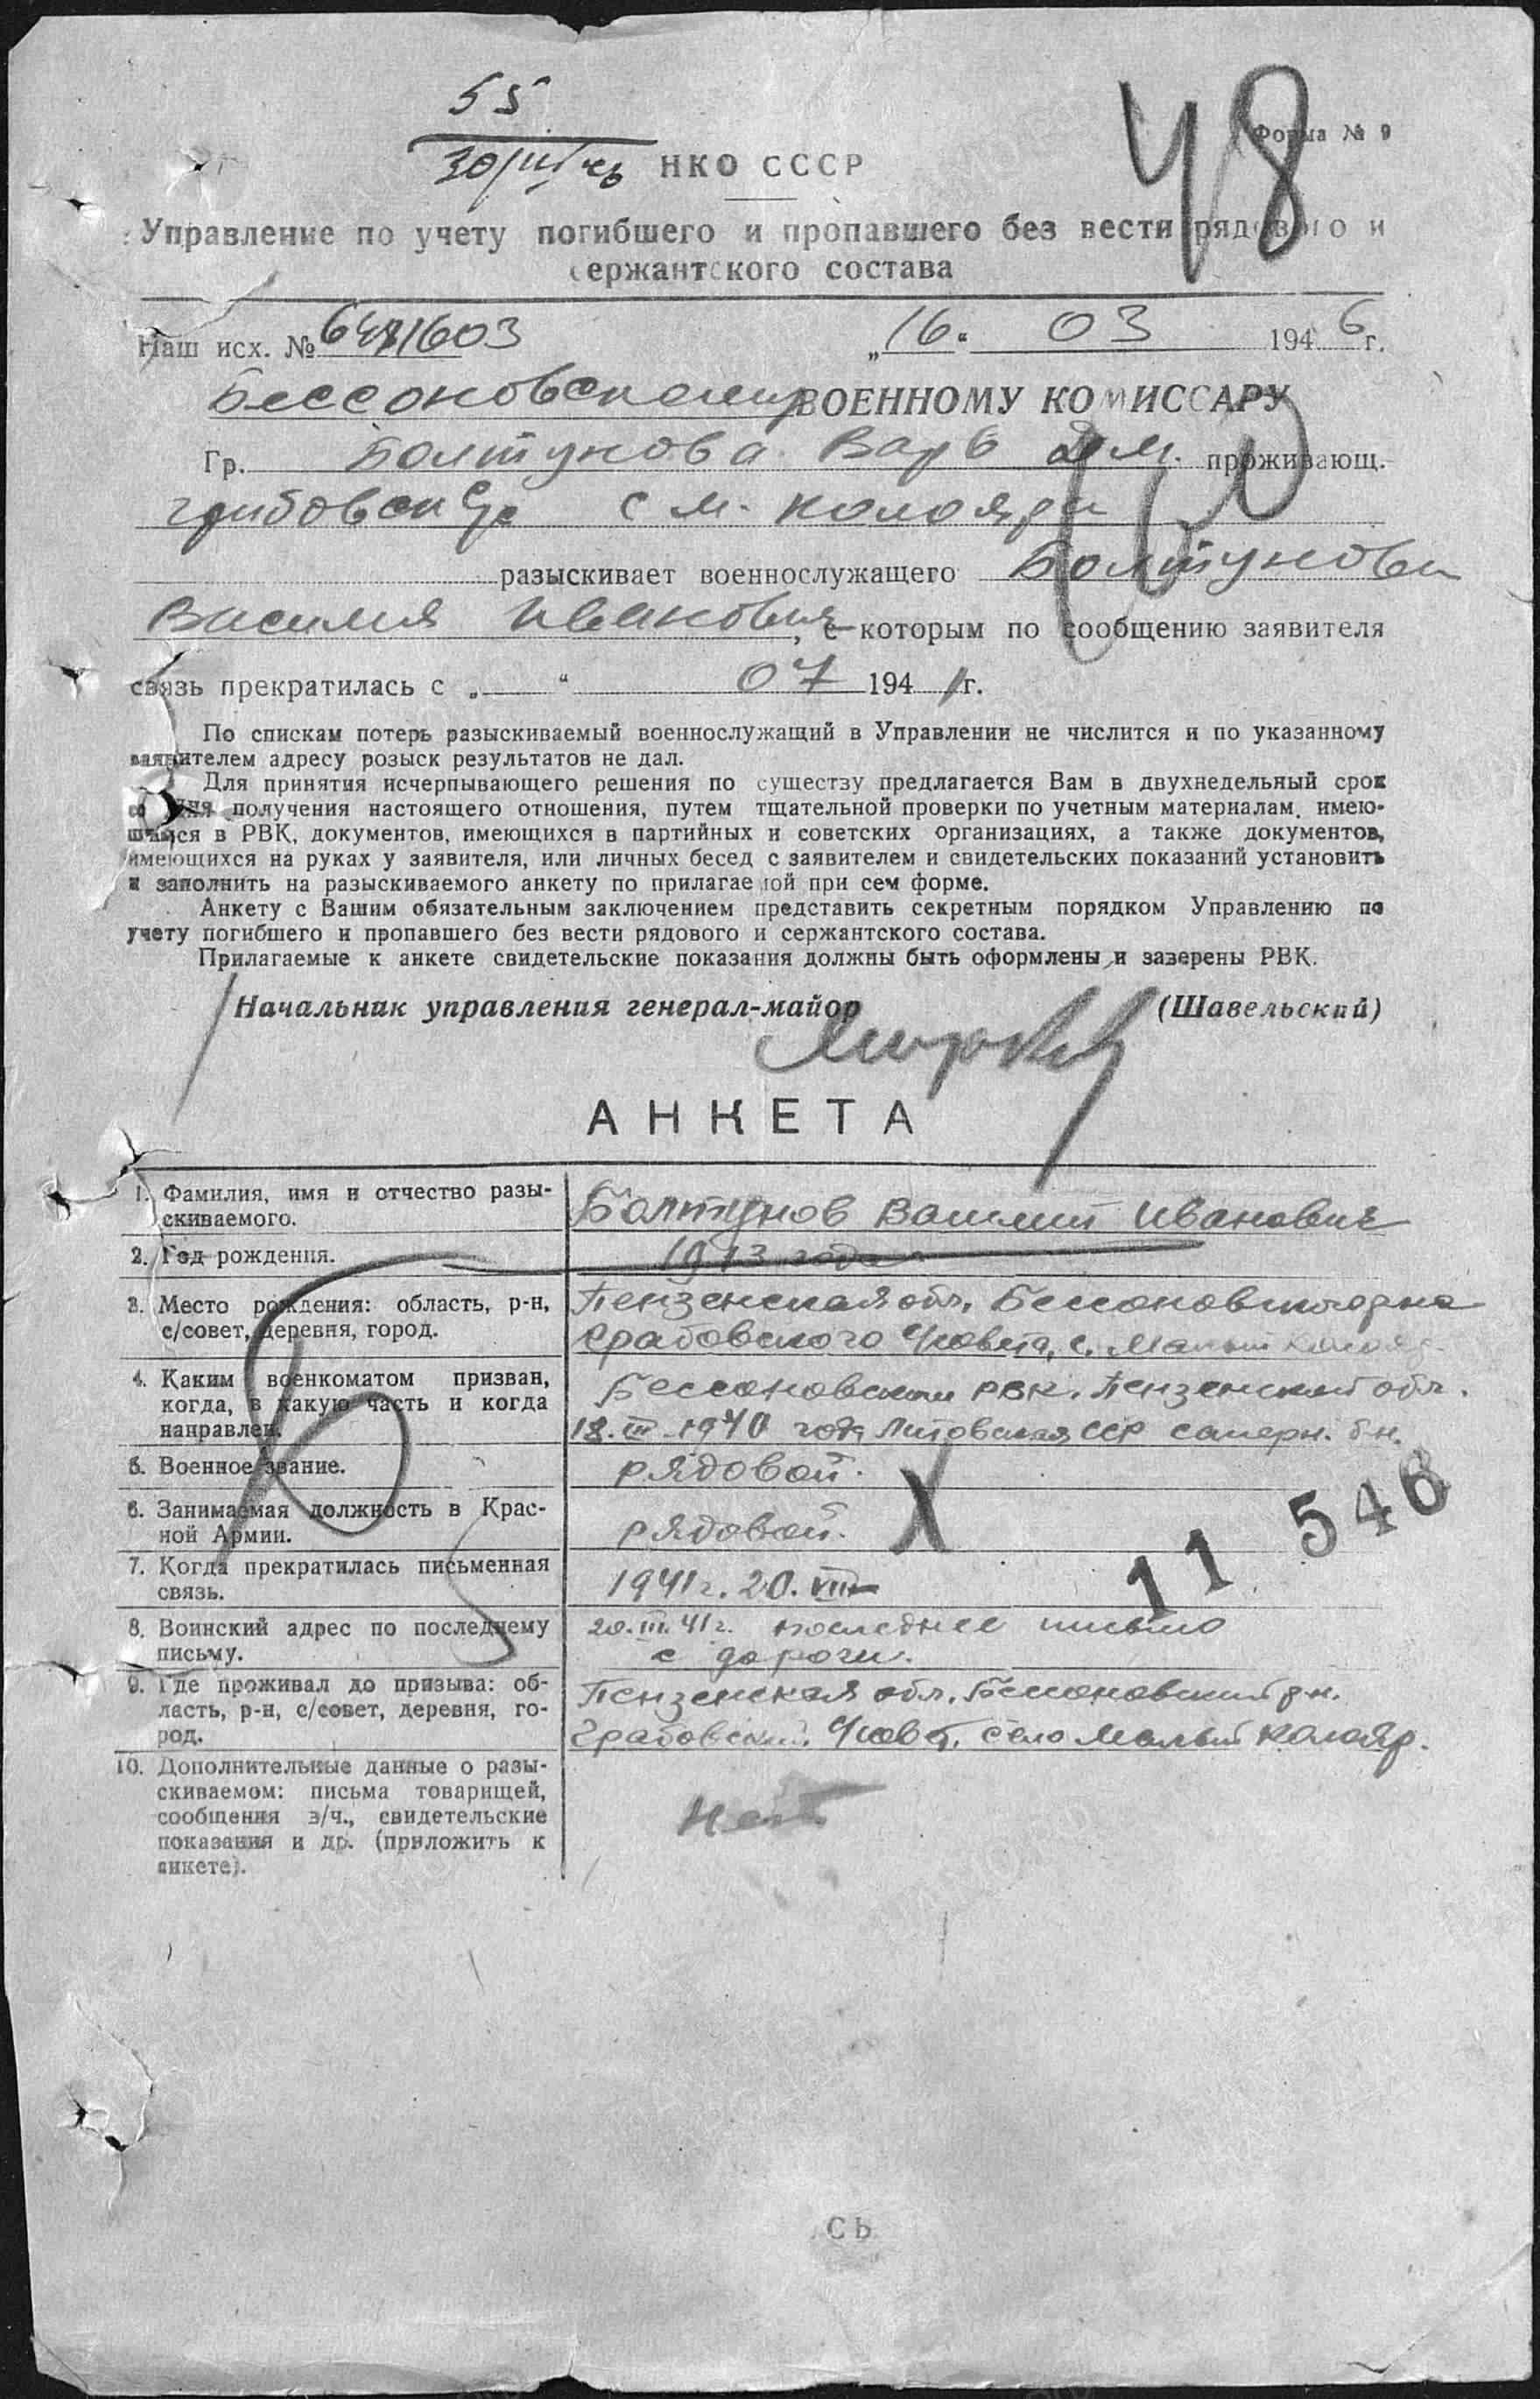 55
48
Форма № 9
30/III 46 НКО СССР
Управление по учету погибшего и пропавшего без вести рядового и
сержантского состава
Наш исх. № 603 „16" 03 1946 г.
Бессоновскому ВОЕННОМУ КОМИССАРУ
Гр. Болтунова Варв проживающ.
с м. колояр
разыскивает военнослужащего Болтунова
Василия Ивановича, с которым по сообщению заявителя
связь прекратилась с „ " 07 1941 г.
По спискам потерь разыскиваемый военнослужащий в Управлении не числится и по указанному
заявителем адресу розыск результатов не дал.
Для принятия исчерпывающего решения по существу предлагается Вам в двухнедельный срок
со дня получения настоящего отношения, путем тщательной проверки по учетным материалам, имею-
щимся в РВК, документов, имеющихся в партийных и советских организациях, а также документов,
имеющихся на руках у заявителя, или личных бесед с заявителем и свидетельских показаний установить
и заполнить на разыскиваемого анкету по прилагаемой при сем форме.
Анкету с Вашим обязательным заключением представить секретным порядком Управлению по
учету погибшего и пропавшего без вести рядового и сержантского состава.
Прилагаемые к анкете свидетельские показания должны быть оформлены и заверены РВК.
Начальник управления генерал-майор (Шавельский)
АНКЕТА
1. Фамилия, имя и отчество разы-
скиваемого.
Болтунов Василий Иванович
2. Год рождения.
1913 года
3. Место рождения: область, р-н,
с/совет, деревня, город.
Пензенская обл. Бессоновского р-на
Грабовского с/совета, с. Малый Колояр
4. Каким военкоматом призван,
когда, в какую часть и когда
направлен.
Бессоновским РВК. Пензенской обл.
18. III. 1940 года Литовская ССР саперн. б-н.
5. Военное звание.
рядовой.
6. Занимаемая должность в Крас-
ной Армии.
рядовой.
X
11 546
7. Когда прекратилась письменная
связь.
1941 г. 20. VII
8. Воинский адрес по последнему
письму.
20. III. 41 г. последнее письмо
с дороги.
9. Где проживал до призыва: об-
ласть, р-н, с/совет, деревня, го-
род.
Пензенская обл. Бессоновский р-н.
Грабовский с/совет, село Малый Колояр.
10. Дополнительные данные о разы-
скиваемом: письма товарищей,
сообщения в/ч., свидетельские
показания и др. (приложить к
анкете).
нет
СЬ